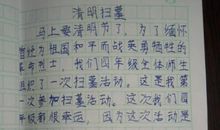 清明扫墓
马上要清明节了，为了缅怀
曾经为祖国和平而战英勇牺牲的
革命烈士，我们四年级全体师生
组织了一次扫墓活动。这是我第
一次参加扫墓活动。这次我们四
年级都很幸运，因为这次活动是